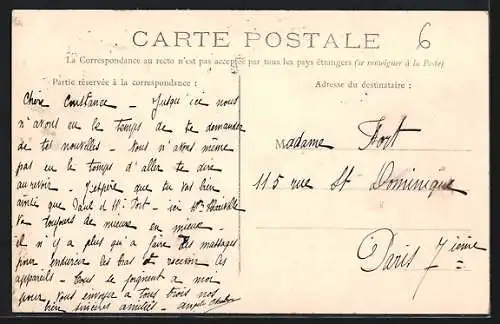 CARTE POSTALE
6
La Correspondance au recto n'est pas acceptée par tous les pays étrangers (se renseigner à la Poste)
Partie réservée à la correspondance :
Adresse du destinataire :
Chère Constance – Jusqu'ici nous
n'avons eu le temps de te demander
de tes nouvelles – Nous n'avons même
pas eu le temps d'aller te dire
au revoir. J'espère que tu vas bien
ainsi que Paul et Mr Fort – ici
va toujours de mieux en mieux –
il n'y a plus qu'à faire des massages
pour endurcir les bras et recevoir les
appareils – Tous se joignent à moi
pour vous envoyer à tous trois nos
bien sincères amitiés –
Madame Fort
115 rue St Dominique
Paris 7ième